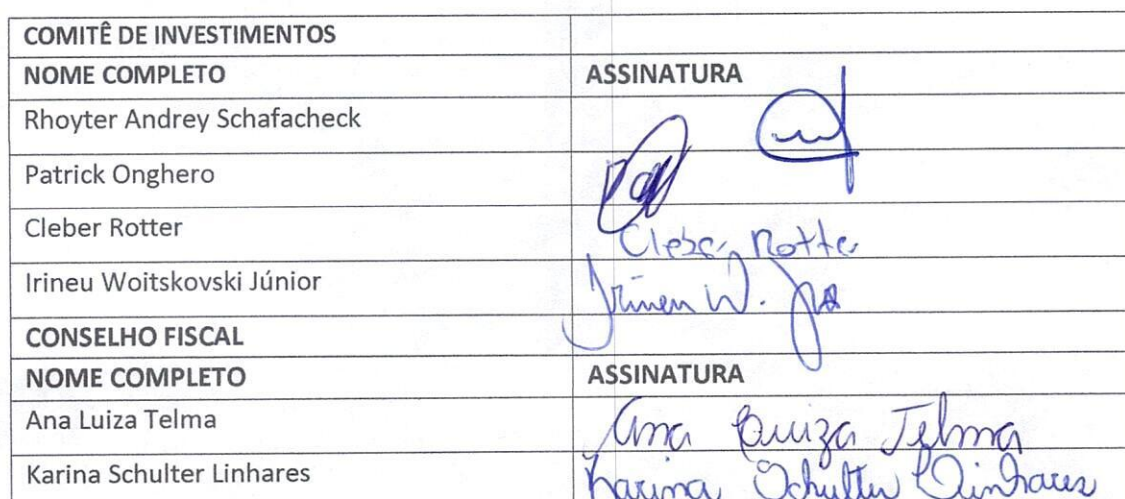 COMITÊ DE INVESTIMENTOS
NOME COMPLETO ASSINATURA
Rhoyter Andrey Schafacheck
Patrick Onghero
Cleber Rotter Cleber Rotter
Irineu Woitskovski Júnior Irineu W. Jr
CONSELHO FISCAL
NOME COMPLETO ASSINATURA
Ana Luiza Telma Ana Luiza Telma
Karina Schulter Linhares Karina Schulter Linhares